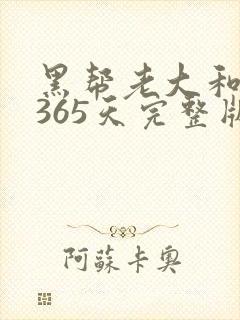 黑帮老大和
365天完整版
阿蘇卡奥